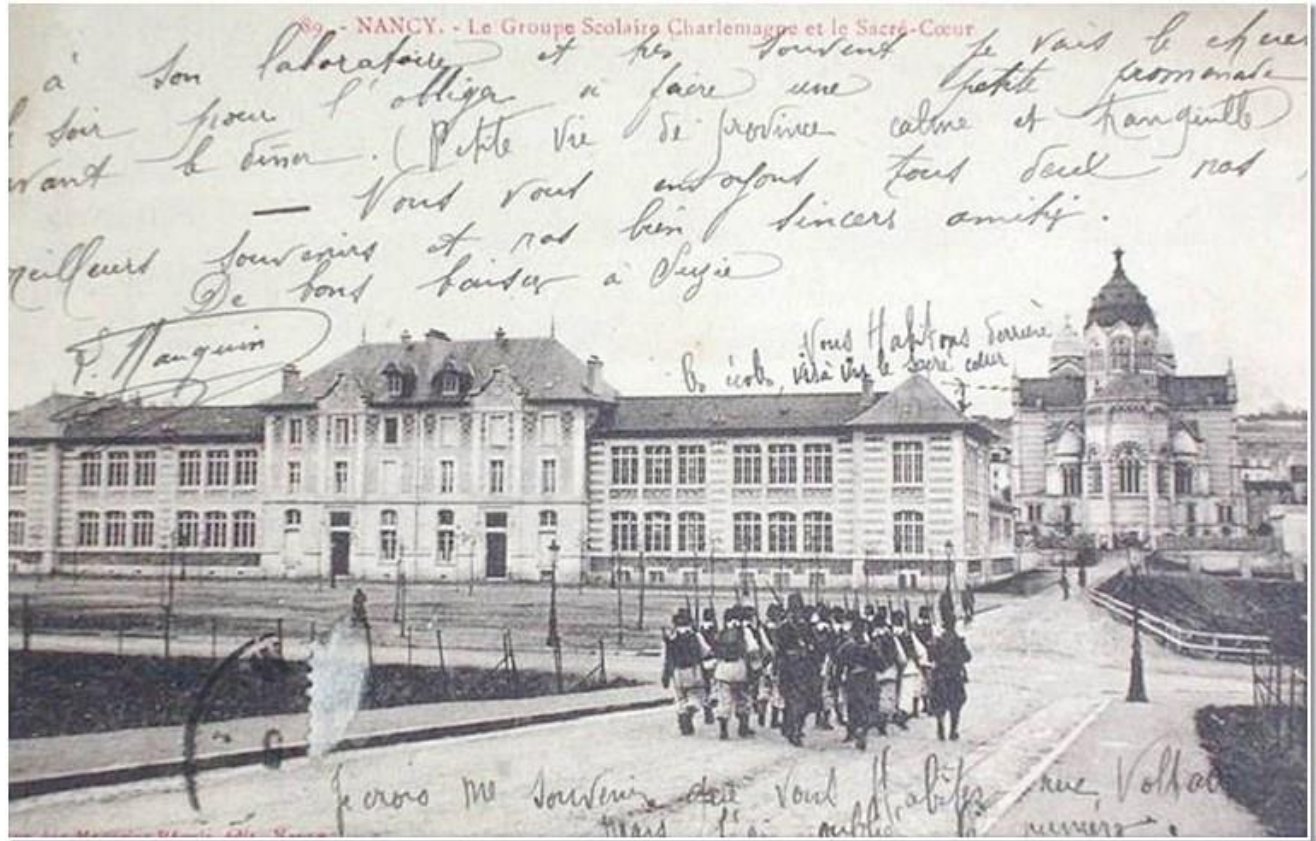 89. - NANCY. - Le Groupe Scolaire Charlemagne et le Sacré-Cœur
à son laboratoire et très souvent je vais le cher
le soir pour l'obliger à faire une petite promenade
avant le dîner. (Petite vie de province calme et tranquille)
— Nous vous envoyons tous deux nos
meilleurs souvenirs et nos bien sincers amitiés.
De bons baisers à Suzie
Mauguin
Nous Habitons derrière
les écoles, vis à vis le sacré cœur
Je crois me souvenir que vous Habitez rue Voltai
mais j'ai oublié le numéro.
Nancy